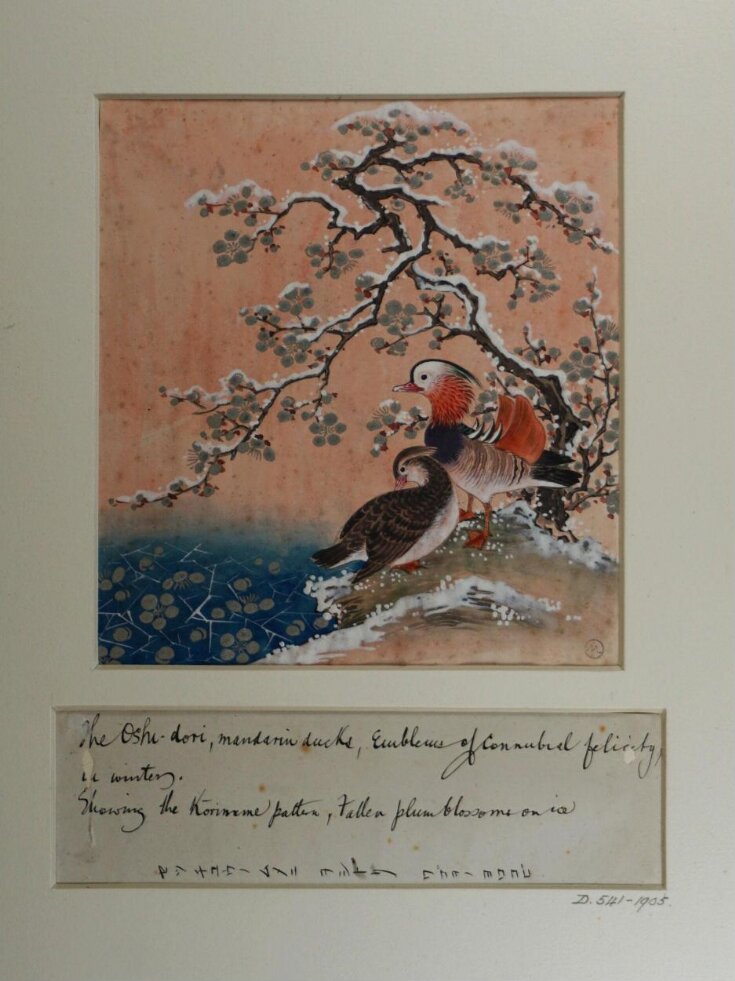 The Oshi-dori, mandarin ducks, Emblems of Connubial felicity,
in winter.
Showing the Korimume pattern, Fallen plum blossoms on ice
D. 541-1905.